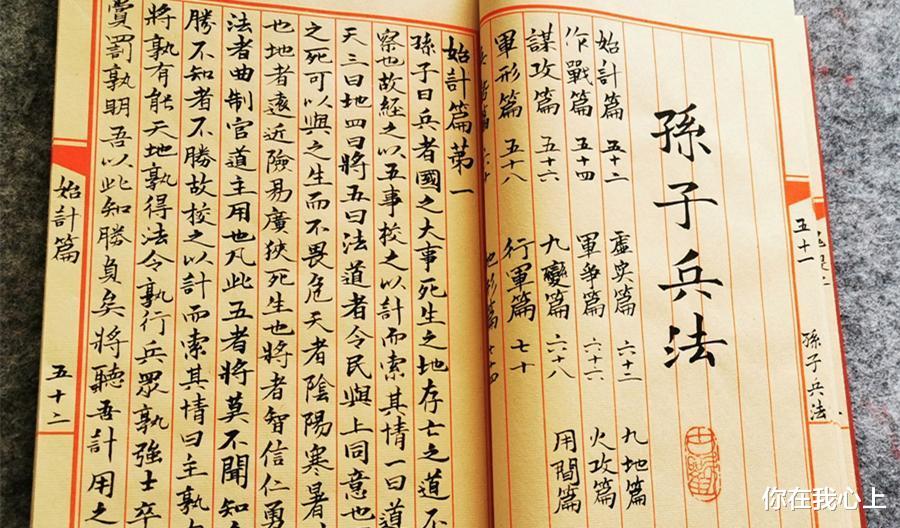 五十一
孫子兵法
孫子兵法
始計篇 五十二
作戰篇 五十四
謀攻篇 五十六
軍形篇 五十八
虛实篇 六十二
軍爭篇 六十六
九變篇 六十八
行軍篇 七十
地形篇
九地篇
火攻篇
用間篇
始計篇第一
孫子曰兵者國之大事死生之地存亡之道不
察也故經之以五事校之以計而索其情一曰道
天三曰地四曰將五曰法道者令民與上同意也
之死可以與之生而不畏危天者陰陽寒暑
也地者遠近險易廣狹死生也將者智信仁勇
法者曲制官道主用也凡此五者將莫不聞知
勝不知者不勝故校之以計而索其情曰主孰
將孰有能天地孰得法令孰行兵眾孰強士卒
賞罰孰明吾以此知勝負矣將聽吾計用之
始計篇
五十二
你在我心上